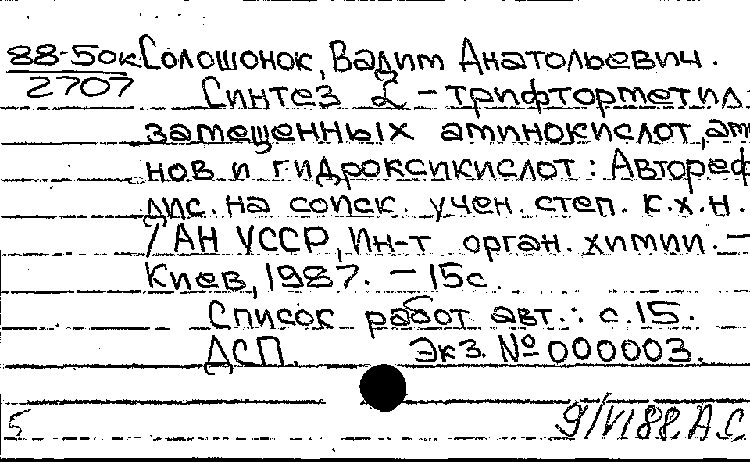 88-5ок Солошонок, Вадим Анатольевич.
2707 Синтез L-трифторметил-
замещенных аминокислот, ами
нов и гидроксикислот: Автореф
дис. на соиск. учен. степ. к.х.н.
/ АН УССР, Ин-т орган. химии. —
Киев, 1987. — 15с.
Список работ авт.: с.15.
ДСП. Экз. № 000003.
5 9/VI88. А.С.